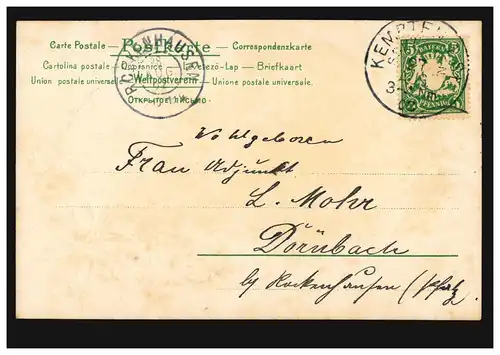 Carte Postale – Postkarte – Correspondenzkarte
Cartolina postale – Dopisnice – Levelező-Lap – Briefkaart
Union postale universelle – Weltpostverein – Unione postale universale.
ОТКРЫТОЕ ПИСЬМО
ROCKENHAUSEN
KEMPTEN
BAYERN
5 5
PFENNIG
Wohlgeboren
Frau Adjunkt
L. Mohr
Dörnbach
b/ Rockenhausen (Pfalz)